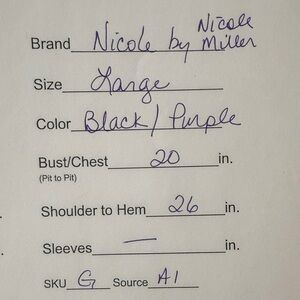 Brand Nicole by Nicole Miller
Size Large
Color Black/Purple
Bust/Chest 20 in.
(Pit to Pit)
Shoulder to Hem 26 in.
Sleeves — in.
SKU G Source A1